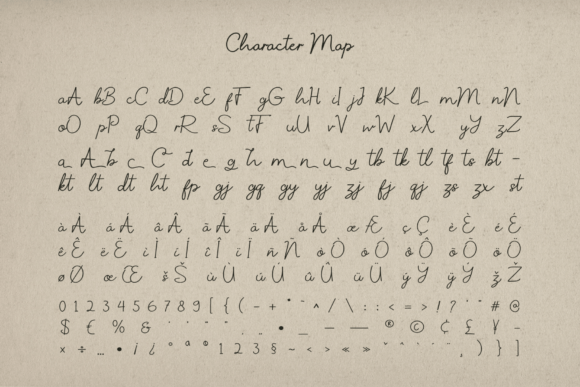 Character Map
aA bB cC dD eE fF gG hH iI jJ kK lL mM nN
oO pP qQ rR sS tT uU vV wW xX yY zZ
a A b c C d e g h m n u y tb tk tl tf ts bt -
kt lt dt ht fp gj gq gy yy zj fj qj zs zx st
àÀ áÁ âÂ ãÃ äÄ åÅ æÆ çÇ èÈ éÉ
êÊ ëË ìÌ íÍ îÎ ïÏ ñÑ òÒ óÓ ôÔ õÕ öÖ
øØ œŒ šŠ ùÙ úÚ ûÛ üÜ ýÝ ÿŸ žŽ
0 1 2 3 4 5 6 7 8 9 [ { ( - + " ' ^ / \ : ; < = > ! ? # @
$ € % & • _ – — ® © ¢ £ ¥ -
× ÷ … • ¡ ¿ º ª º 1 2 3 § ~ ‹ › « » , ) } ]